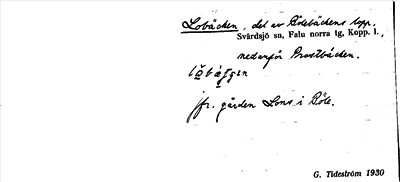 Lobäcken, del av Bölebäckens lopp,
Svärdsjö sn, Falu norra tg, Kopp. l.,
nedanför Prostbäcken.
jfr. gården Lons i Böle.
G. Tideström 1930